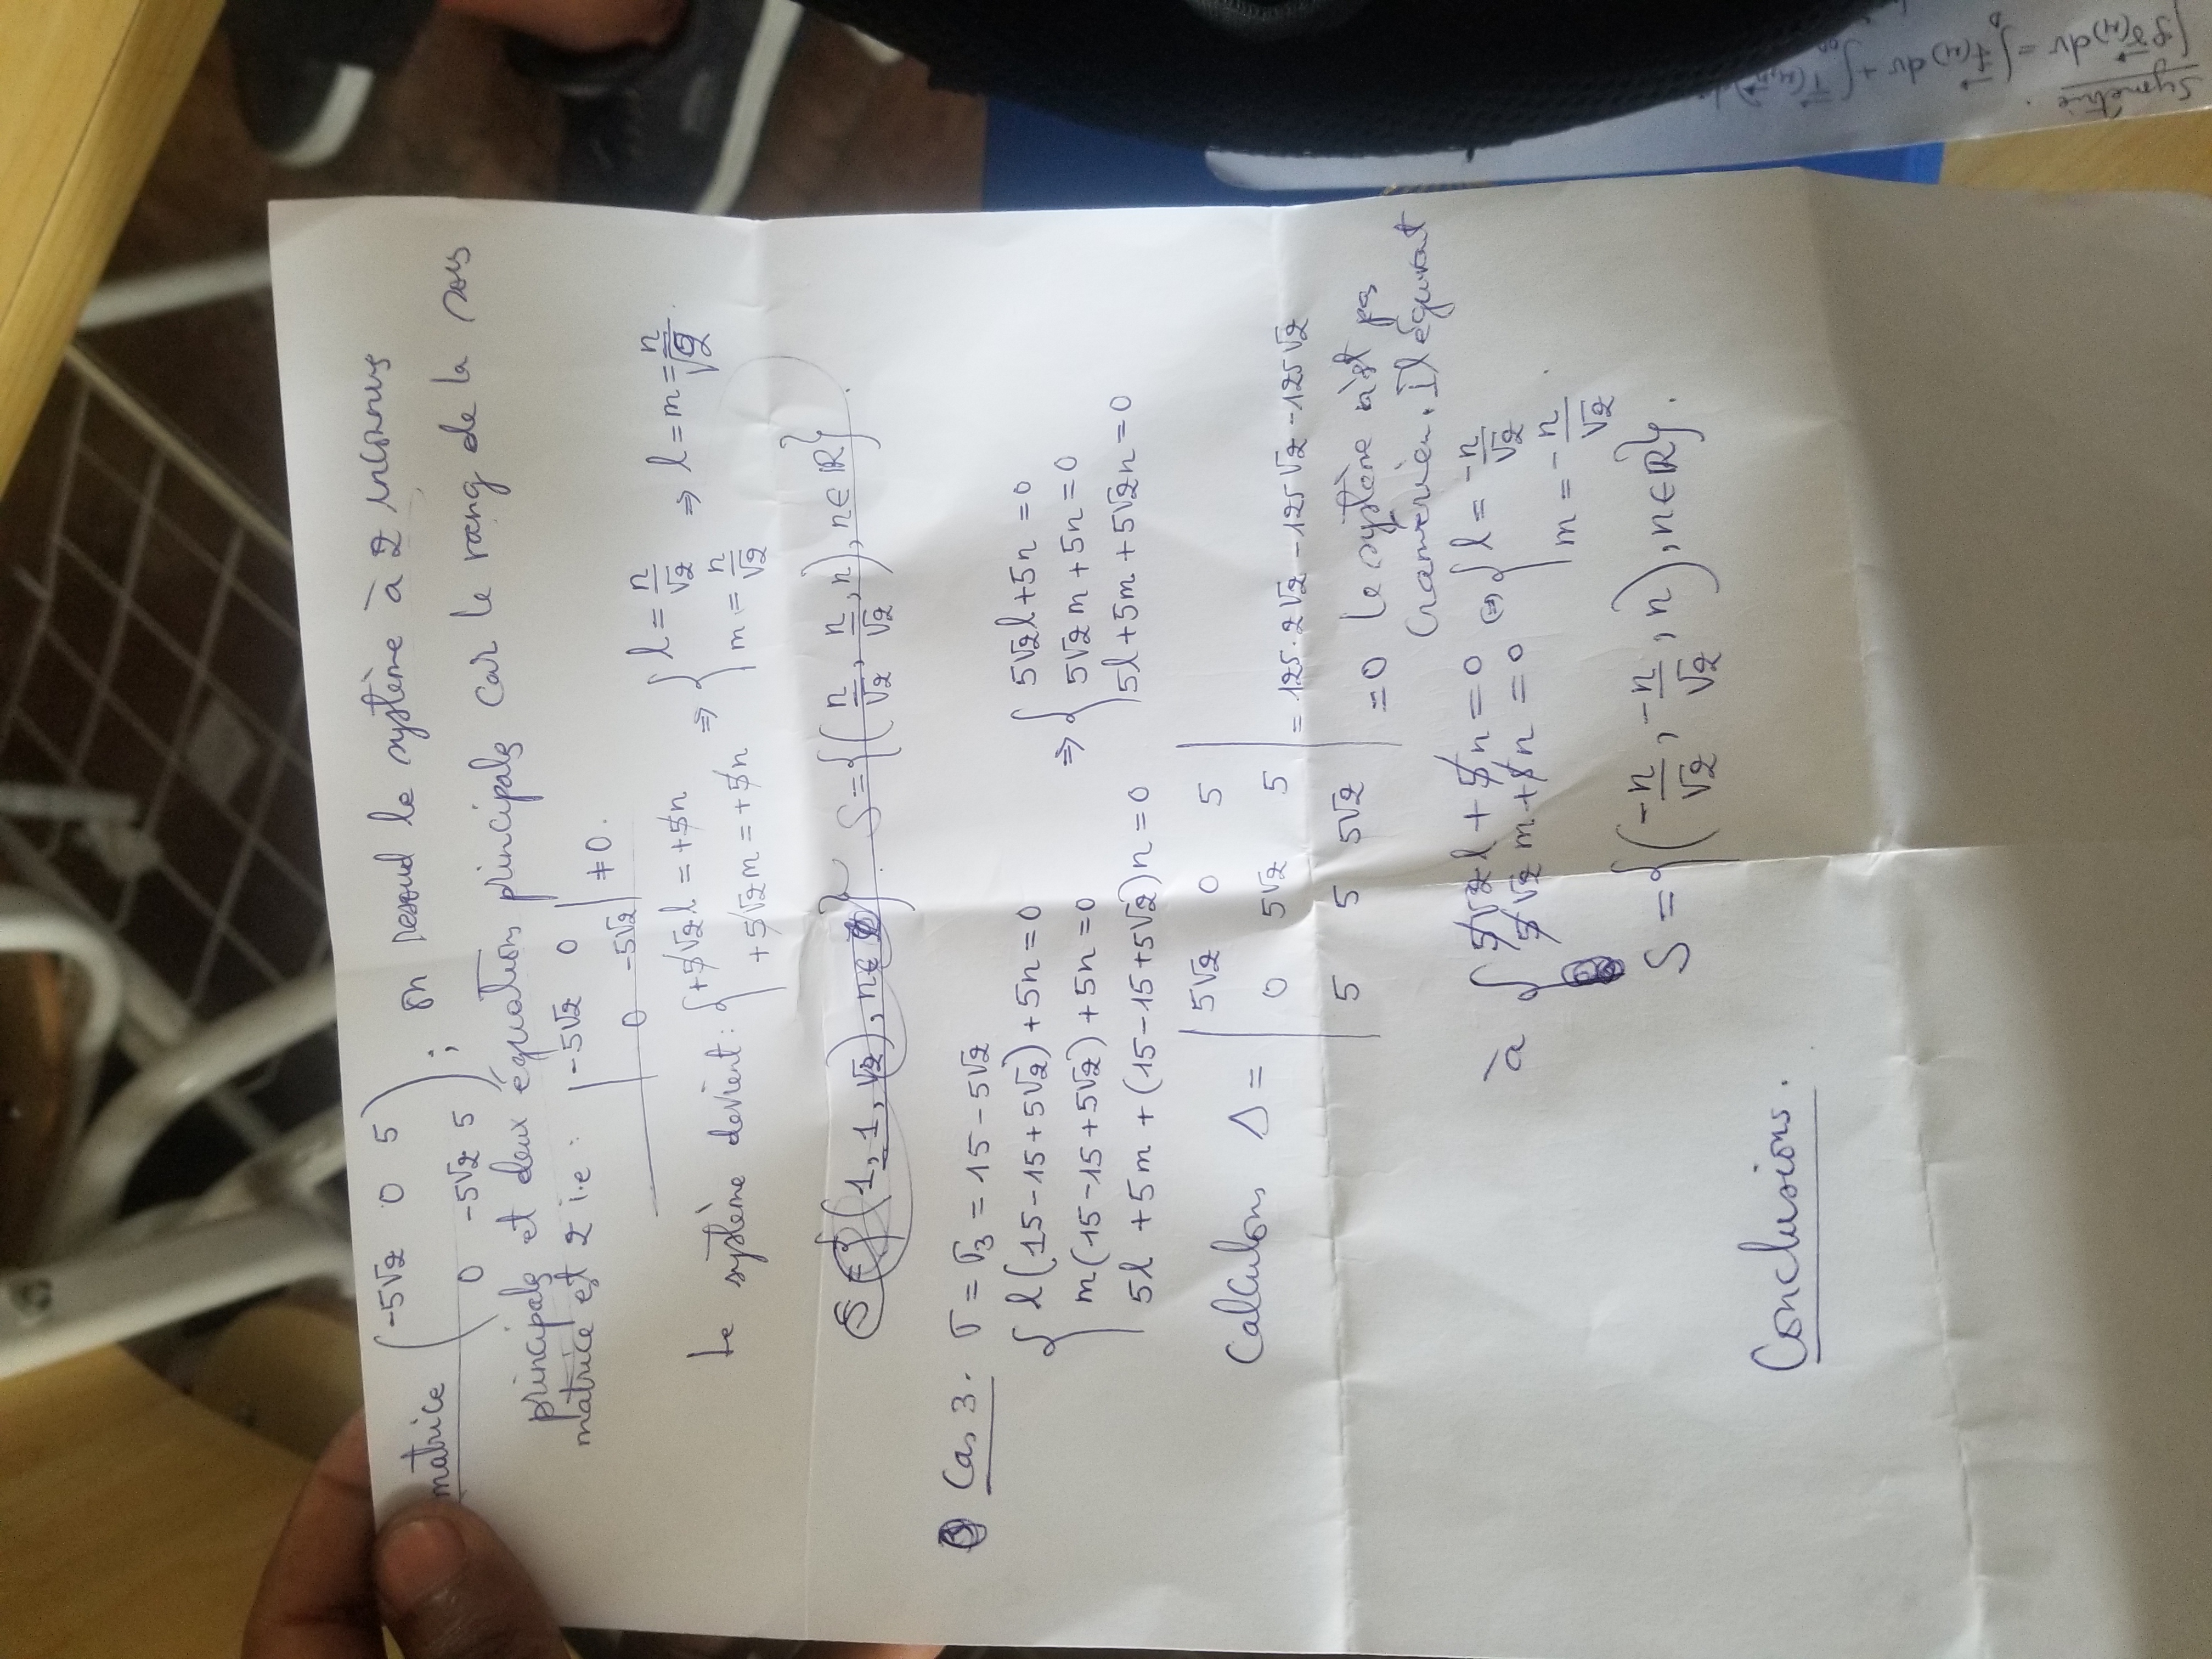 matrice (-5√2 0 5 ; 0 -5√2 5) ; on resoud le système à 2 inconnus
principals et deux équations principals car le rang de la sous
matrice est 2 i.e : |-5√2 0 ; 0 -5√2| ≠ 0.
Le système devient : { +5√2l = +5n ; +5√2m = +5n ⇒ { l = n/√2 ; m = n/√2 ⇒ l = m = n/√2.
S = {(1, 1, √2), n ∈ } . S = {(n/√2, n/√2, n), n ∈ ℝ} .
Cas 3. σ = σ3 = 15 - 5√2
{ l(15-15+5√2) + 5n = 0 ⇒ { 5√2l + 5n = 0
m(15-15+5√2) + 5n = 0 5√2m + 5n = 0
5l + 5m + (15-15+5√2)n = 0 5l + 5m + 5√2n = 0
Calculons Δ = | 5√2 0 5 ; 0 5√2 5 ; 5 5 5√2 | = 125·2√2 - 125√2 - 125√2
= 0 Le système n'est pas
Cramérien. Il équivaut
à { 5√2l + 5n = 0 ; 5√2m + 5n = 0 ⇔ { l = -n/√2 ; m = -n/√2 .
S = {(-n/√2, -n/√2, n), n ∈ ℝ}.
Conclusions.
Symétrie.